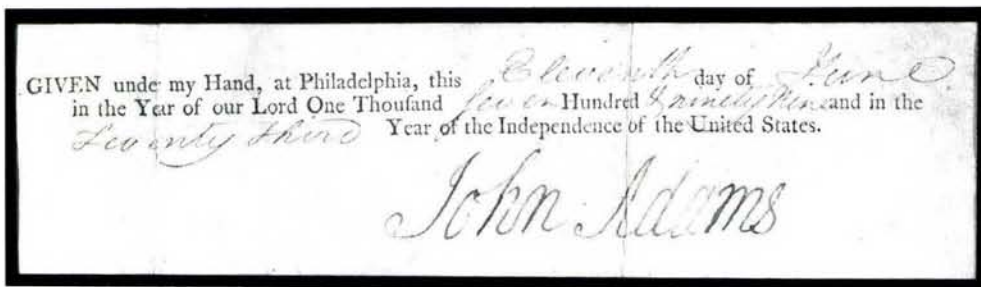 GIVEN unde my Hand, at Philadelphia, this Eleventh day of June
in the Year of our Lord One Thouſand Seven Hundred & ninety Nine and in the
Twenty third Year of the Independence of the United States.
John Adams